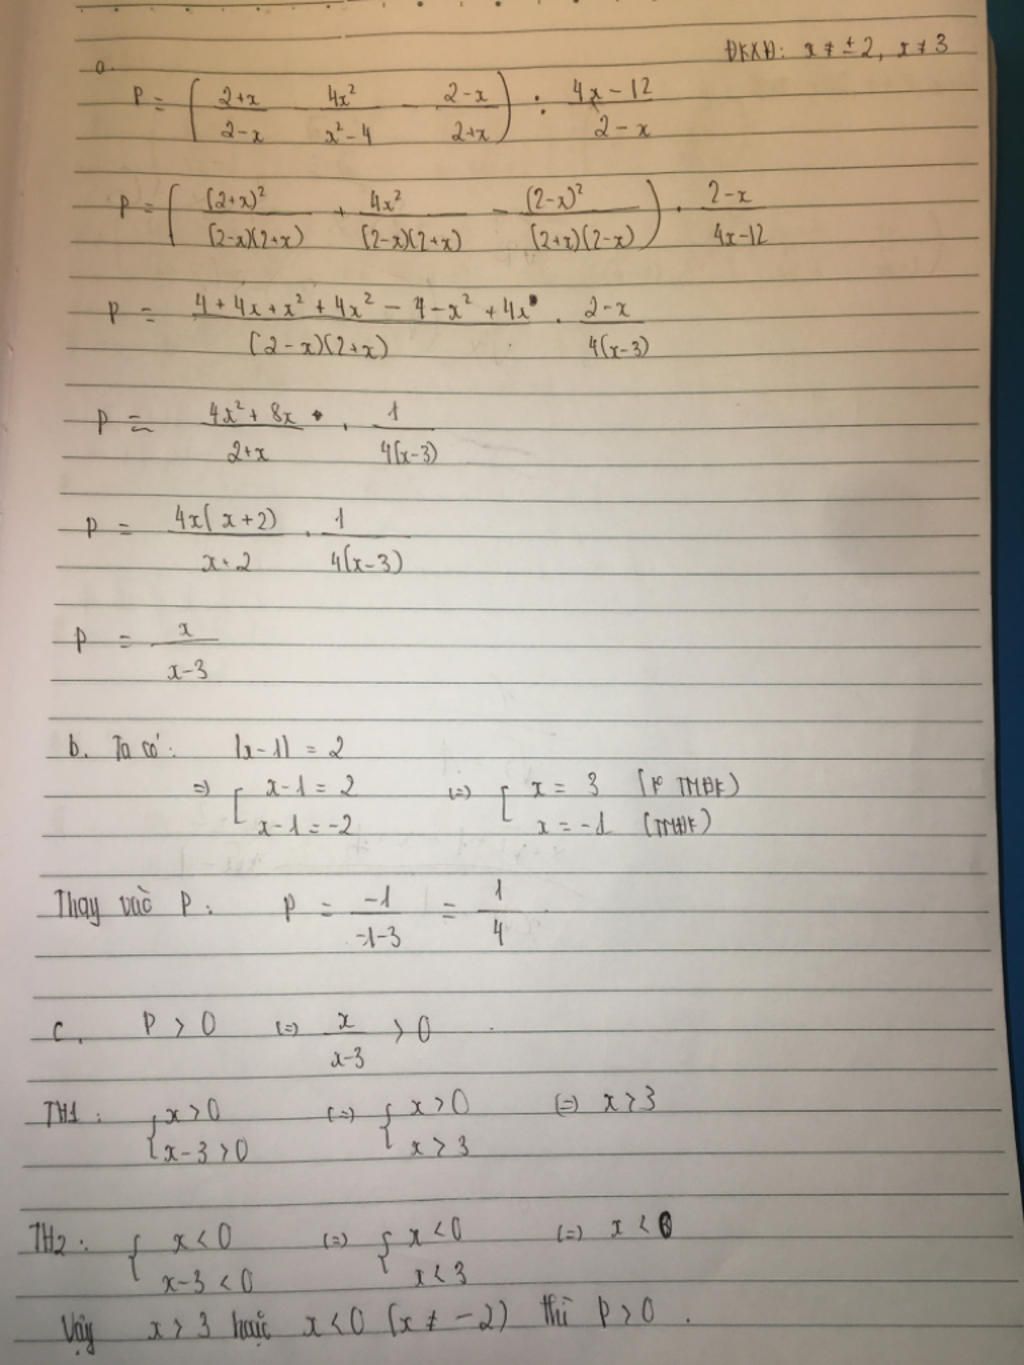 ĐKXĐ: x ≠ ±2, x ≠ 3
a.
P = ( (2+x)/(2-x) - 4x²/(x²-4) - (2-x)/(2+x) ) : (4x-12)/(2-x)
P = ( (2+x)²/((2-x)(2+x)) + 4x²/((2-x)(2+x)) - (2-x)²/((2+x)(2-x)) ) . (2-x)/(4x-12)
P = (4+4x+x²+4x²-4-x²+4x)/((2-x)(2+x)) . (2-x)/(4(x-3))
P = (4x²+8x)/(2+x) . 1/(4(x-3))
P = (4x(x+2))/(x+2) . 1/(4(x-3))
P = x/(x-3)
b. Ta có: |x-1| = 2
=> [ x-1=2 (=) [ x = 3 (K TMĐK)
x-1=-2 x = -1 (TMĐK)
Thay vào P: P = -1/(-1-3) = 1/4
c. P > 0 (=) x/(x-3) > 0
TH1: { x>0 (=) { x>0 (=) x>3
x-3>0 x>3
TH2: { x<0 (=) { x<0 (=) x<0
x-3<0 x<3
Vậy x>3 hoặc x<0 (x ≠ -2) thì P>0.